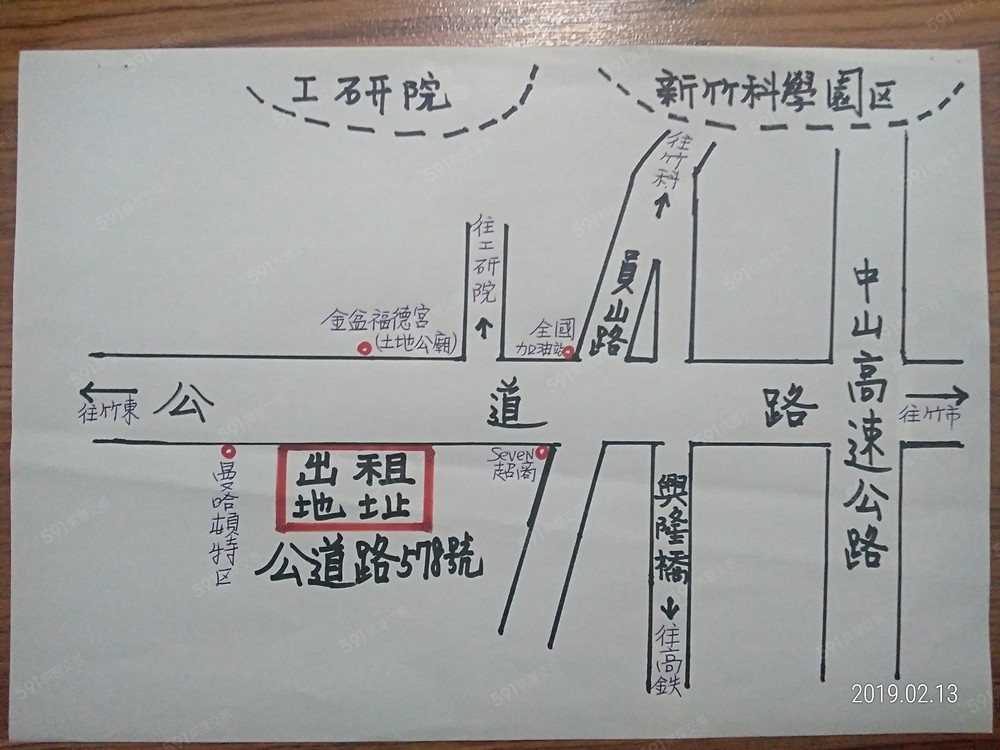 工研院
新竹科學園区
往竹科
往工研院
員山路
中山高速公路
金盆福德宮
(土地公廟)
全國
加油站
往竹東
公道路
往竹市
Seven
超商
曼哈頓特区
出租
地址
公道路578號
興隆橋
往高鉄
2019.02.13